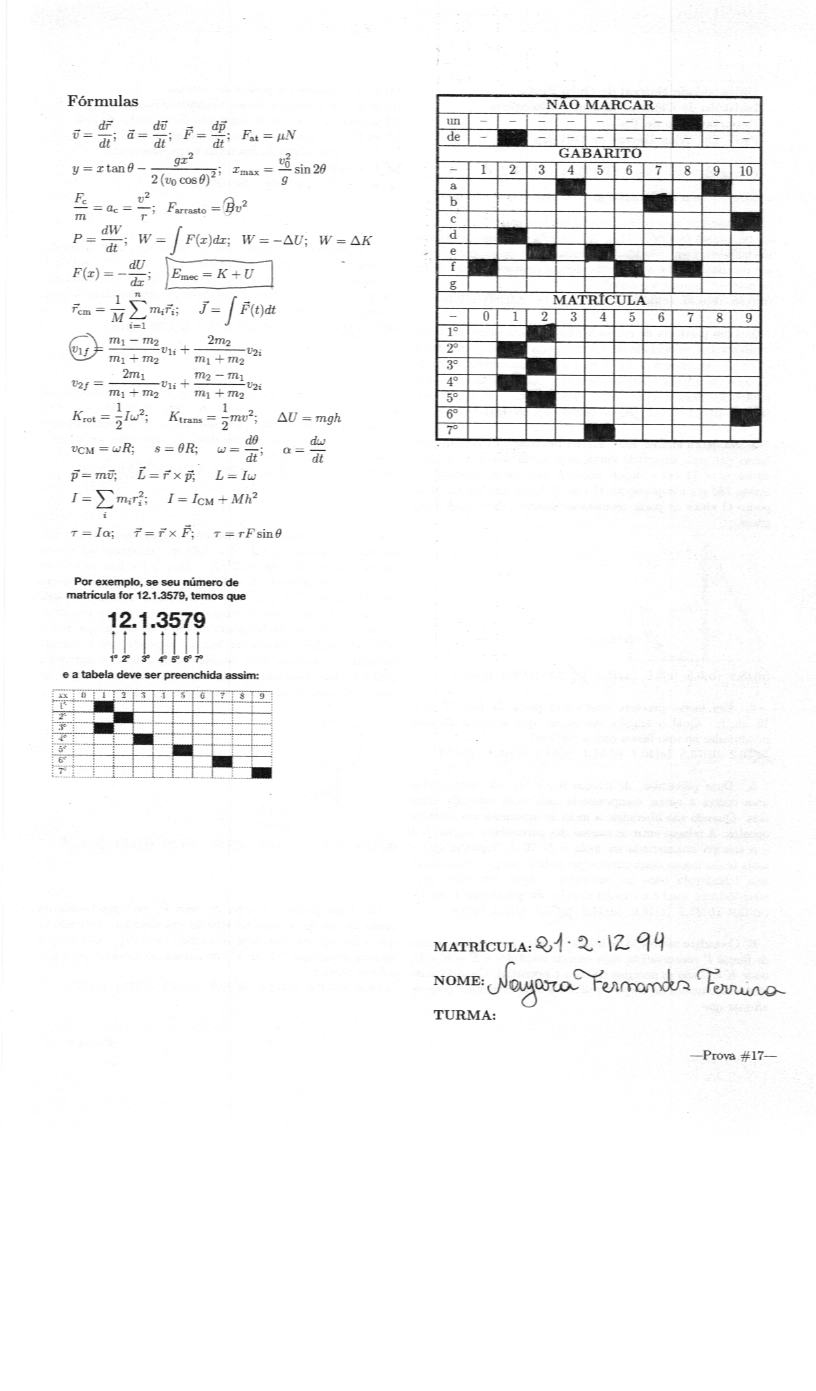 Fórmulas
\vec{v} = \frac{d\vec{r}}{dt}; \vec{a} = \frac{d\vec{v}}{dt}; \vec{F} = \frac{d\vec{p}}{dt}; F_{at} = μN
y = x tan θ − \frac{gx^2}{2 (v_0 cos θ)^2}; x_{max} = \frac{v_0^2}{g} sin 2θ
\frac{F_c}{m} = a_c = \frac{v^2}{r}; F_{arrasto} = Bv^2
P = \frac{dW}{dt}; W = ∫ F(x)dx; W = −ΔU; W = ΔK
F(x) = −\frac{dU}{dx}; E_{mec} = K + U
\vec{r}_{cm} = \frac{1}{M} \sum_{i=1}^{n} m_i\vec{r}_i; \vec{J} = ∫ \vec{F}(t)dt
v_{1f} = \frac{m_1 − m_2}{m_1 + m_2}v_{1i} + \frac{2m_2}{m_1 + m_2}v_{2i}
v_{2f} = \frac{2m_1}{m_1 + m_2}v_{1i} + \frac{m_2 − m_1}{m_1 + m_2}v_{2i}
K_{rot} = \frac{1}{2}Iω^2; K_{trans} = \frac{1}{2}mv^2; ΔU = mgh
v_{CM} = ωR; s = θR; ω = \frac{dθ}{dt}; α = \frac{dω}{dt}
\vec{p} = m\vec{v}; \vec{L} = \vec{r} × \vec{p}; L = Iω
I = \sum_i m_i r_i^2; I = I_{CM} + Mh^2
τ = Iα; \vec{τ} = \vec{r} × \vec{F}; τ = rF sin θ
Por exemplo, se seu número de
matrícula for 12.1.3579, temos que
12.1.3579
1º 2º 3º 4º 5º 6º 7º
e a tabela deve ser preenchida assim:
xx 0 1 2 3 4 5 6 7 8 9
1º
2º
3º
4º
5º
6º
7º
NÃO MARCAR
un – – – – – – – – –
de – – – – – – – – –
GABARITO
– 1 2 3 4 5 6 7 8 9 10
a
b
c
d
e
f
g
MATRÍCULA
– 0 1 2 3 4 5 6 7 8 9
1º
2º
3º
4º
5º
6º
7º
MATRÍCULA: 21.2.1294
NOME: Nayara Fernandes Ferreira
TURMA:
—Prova #17—